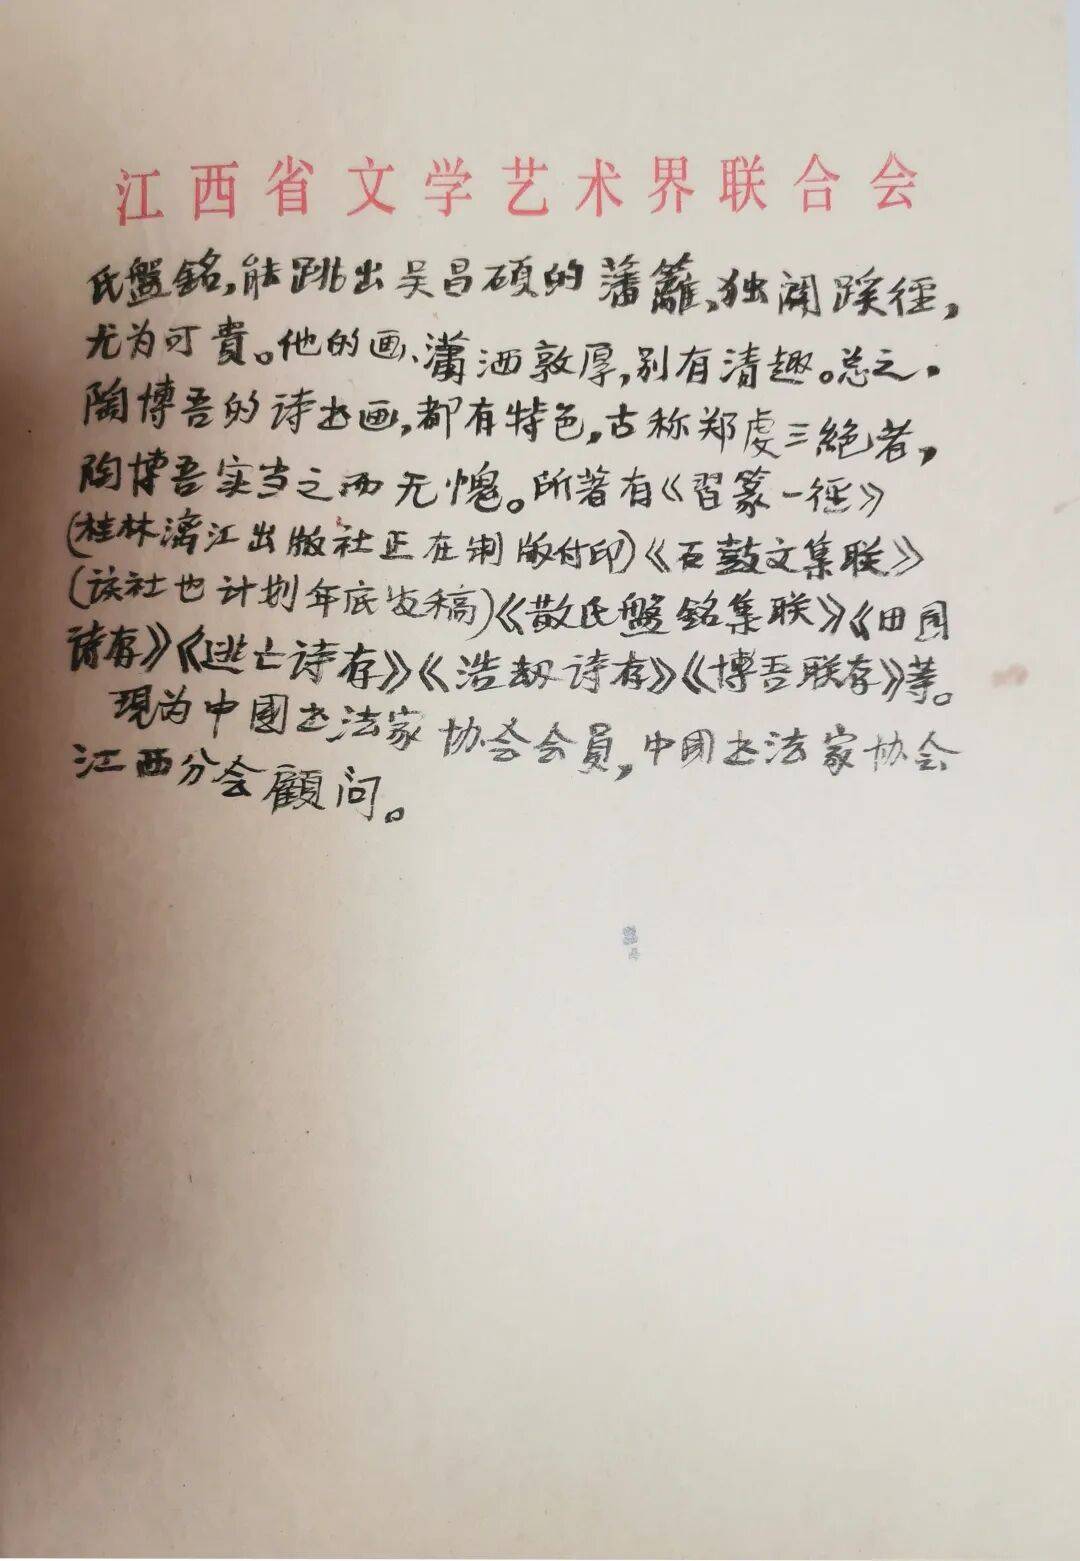 江西省文学艺术界联合会
氏盤銘,能跳出吴昌硕的藩籬,独闢蹊徑,
尤为可貴。他的画、瀟洒敦厚,别有清趣。总之,
陶博吾的诗书画,都有特色,古称郑虔三絶者,
陶博吾实当之而无愧。所著有《習篆一徑》
(桂林漓江出版社正在制版付印)《石鼓文集联》
(该社也计划年底发稿)《散氏盤銘集联》《田园
诗存》《逃亡诗存》《浩劫诗存》《博吾联存》等。
現为中國书法家协会会員,中國书法家协会
江西分会顧问。